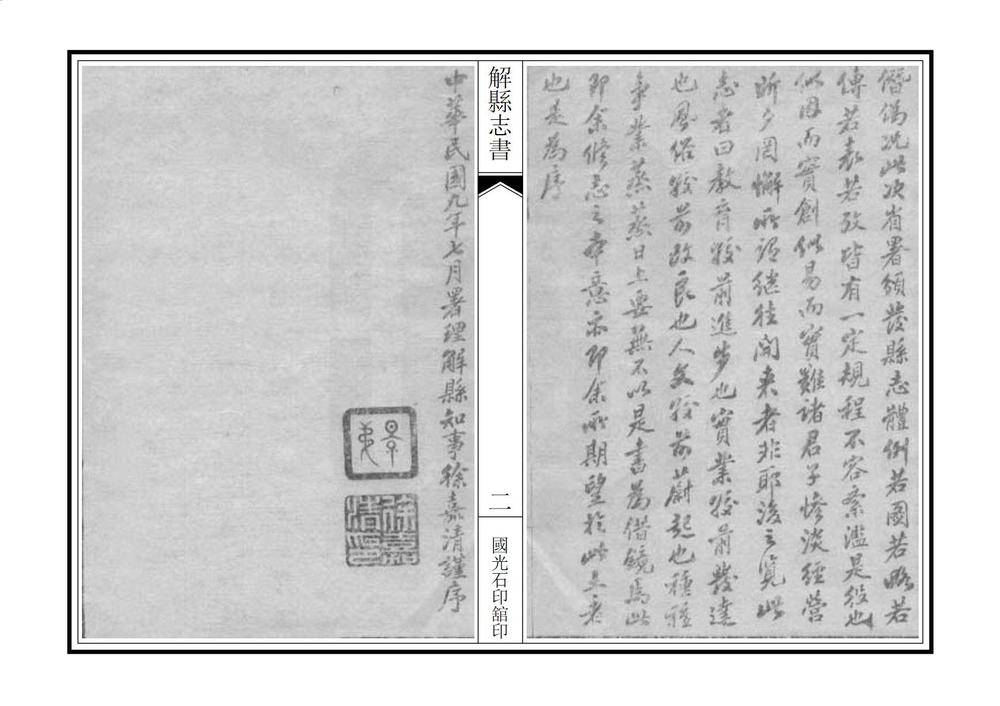 僭偽況此次省署頒發縣志體例若圖若略若
傳若表若攷皆有一定規程不容紊濫是役也
似因而實創似易而實難諸君子慘淡經營
昕夕罔懈所謂繼往開來者非耶後之覽此
志者曰教育較前進步也實業較前發達
也風俗較前改良也人文較前蔚起也種種
事業蒸蒸日上要無不以是書為借鏡焉此
即余修志之本意亦即余所期望於此者
也是為序
解縣志書
二
國光石印舘印
中華民國九年七月署理解縣知事徐嘉清謹序
徐嘉清印